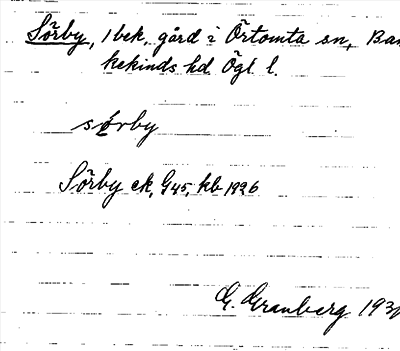 Sörby, 1 bek. gård i Örtomta sn, Ban
kekinds hd. Ögl. l.
sørby
Sörby ek, G45, kb 1926
G. Granberg 193